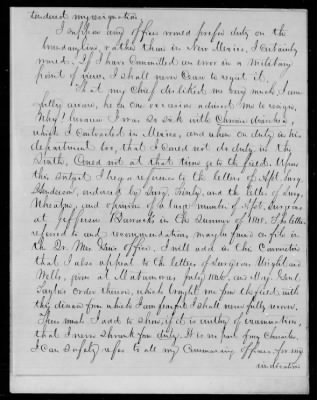 tendered my resignation.
I suppose any officer would prefer duty on the
Brandywine, rather than in New Mexico, I certainly
would. If I have committed an error in a Military
point of view, I shall never cease to regret it.
That my Chief disliked me very much, I am
fully aware, he on one occasion advised me to resign,
Why! because I was so sick with Chronic diarrhea,
which I contracted in Mexico, and when on duty in his
department too, that I could not do duty in the
Sixth, Could not at that time go to the field. Upon
this subject I beg a reference to the letters of Asst. Surg.
Henderson, endorsed by Surg. Finley, and the letter of Surg.
Wheaton, and opinion of a large number of Asst. Surgeons
at Jefferson Barracks in the Summer of 1848. The letters
referred to and recommendation, may be found on file in
the Office, I will add in this Connection
that I also appeal to the letters of Surgeons Wright and
Wells, given at Matamoras, July 1846, and Maj. Genl.
Taylors order thereon, which brought me from the field, with
this disease from which I am fearful I shall never fully recover.
These much I add to show, if it is worthy of examination,
that I never shrunk from duty. It is no part of my Character.
I can safely refer to all my Commanding officers for my
vindication